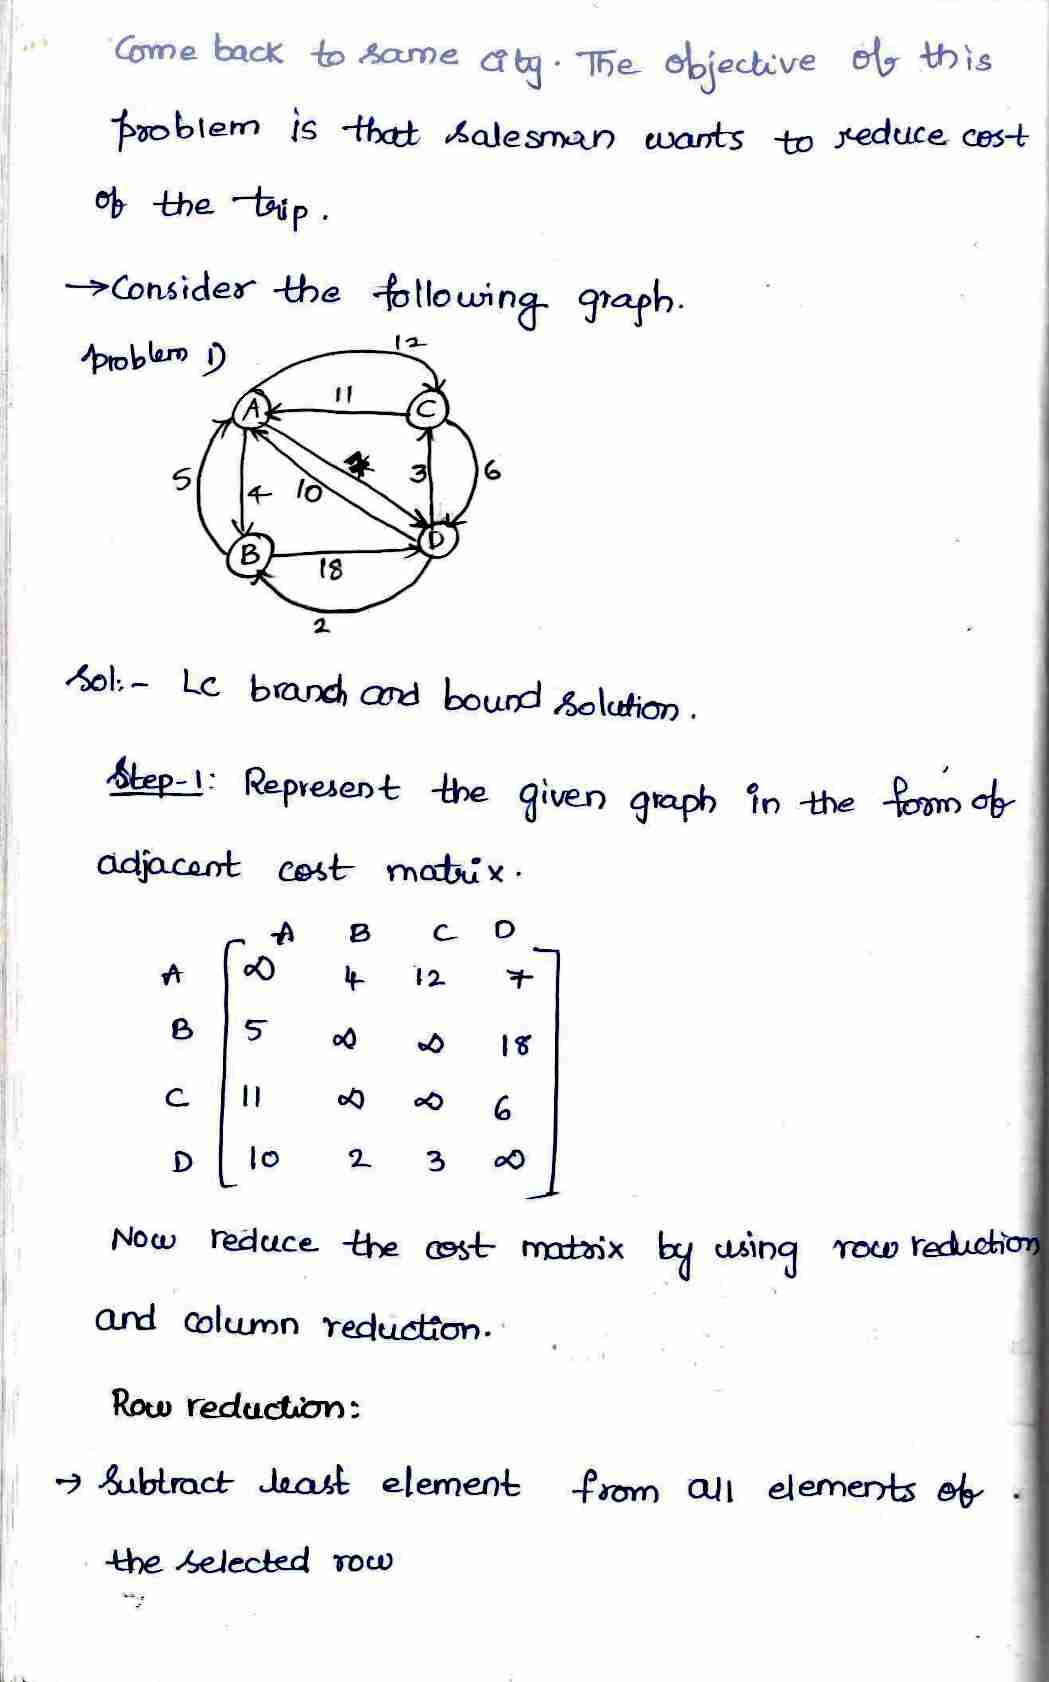 Come back to same city. The objective of this
problem is that salesman wants to reduce cost
of the trip.
→ Consider the following graph.
problem 1)
12
A
11
C
5
4
10
3
6
B
18
D
2
Sol:- LC branch and bound solution.
Step-1: Represent the given graph in the form of
adjacent cost matrix.
A B C D
A ∞ 4 12 7
B 5 ∞ ∞ 18
C 11 ∞ ∞ 6
D 10 2 3 ∞
Now reduce the cost matrix by using row reduction
and column reduction.
Row reduction:
→ Subtract least element from all elements of
the selected row